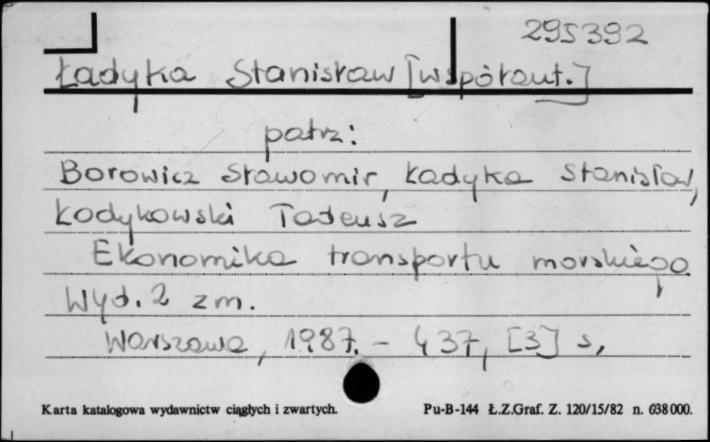 295392
Ładyka Stanisław [współaut.]
patrz:
Borowicz Sławomir, Ładyka Stanisław,
Łodykowski Tadeusz
Ekonomika transportu morskiego
Wyd. 2 zm.
Warszawa, 1987. – 437, [3] s,
Karta katalogowa wydawnictw ciągłych i zwartych. Pu-B-144 Ł.Z.Graf. Z. 120/15/82 n. 638 000.